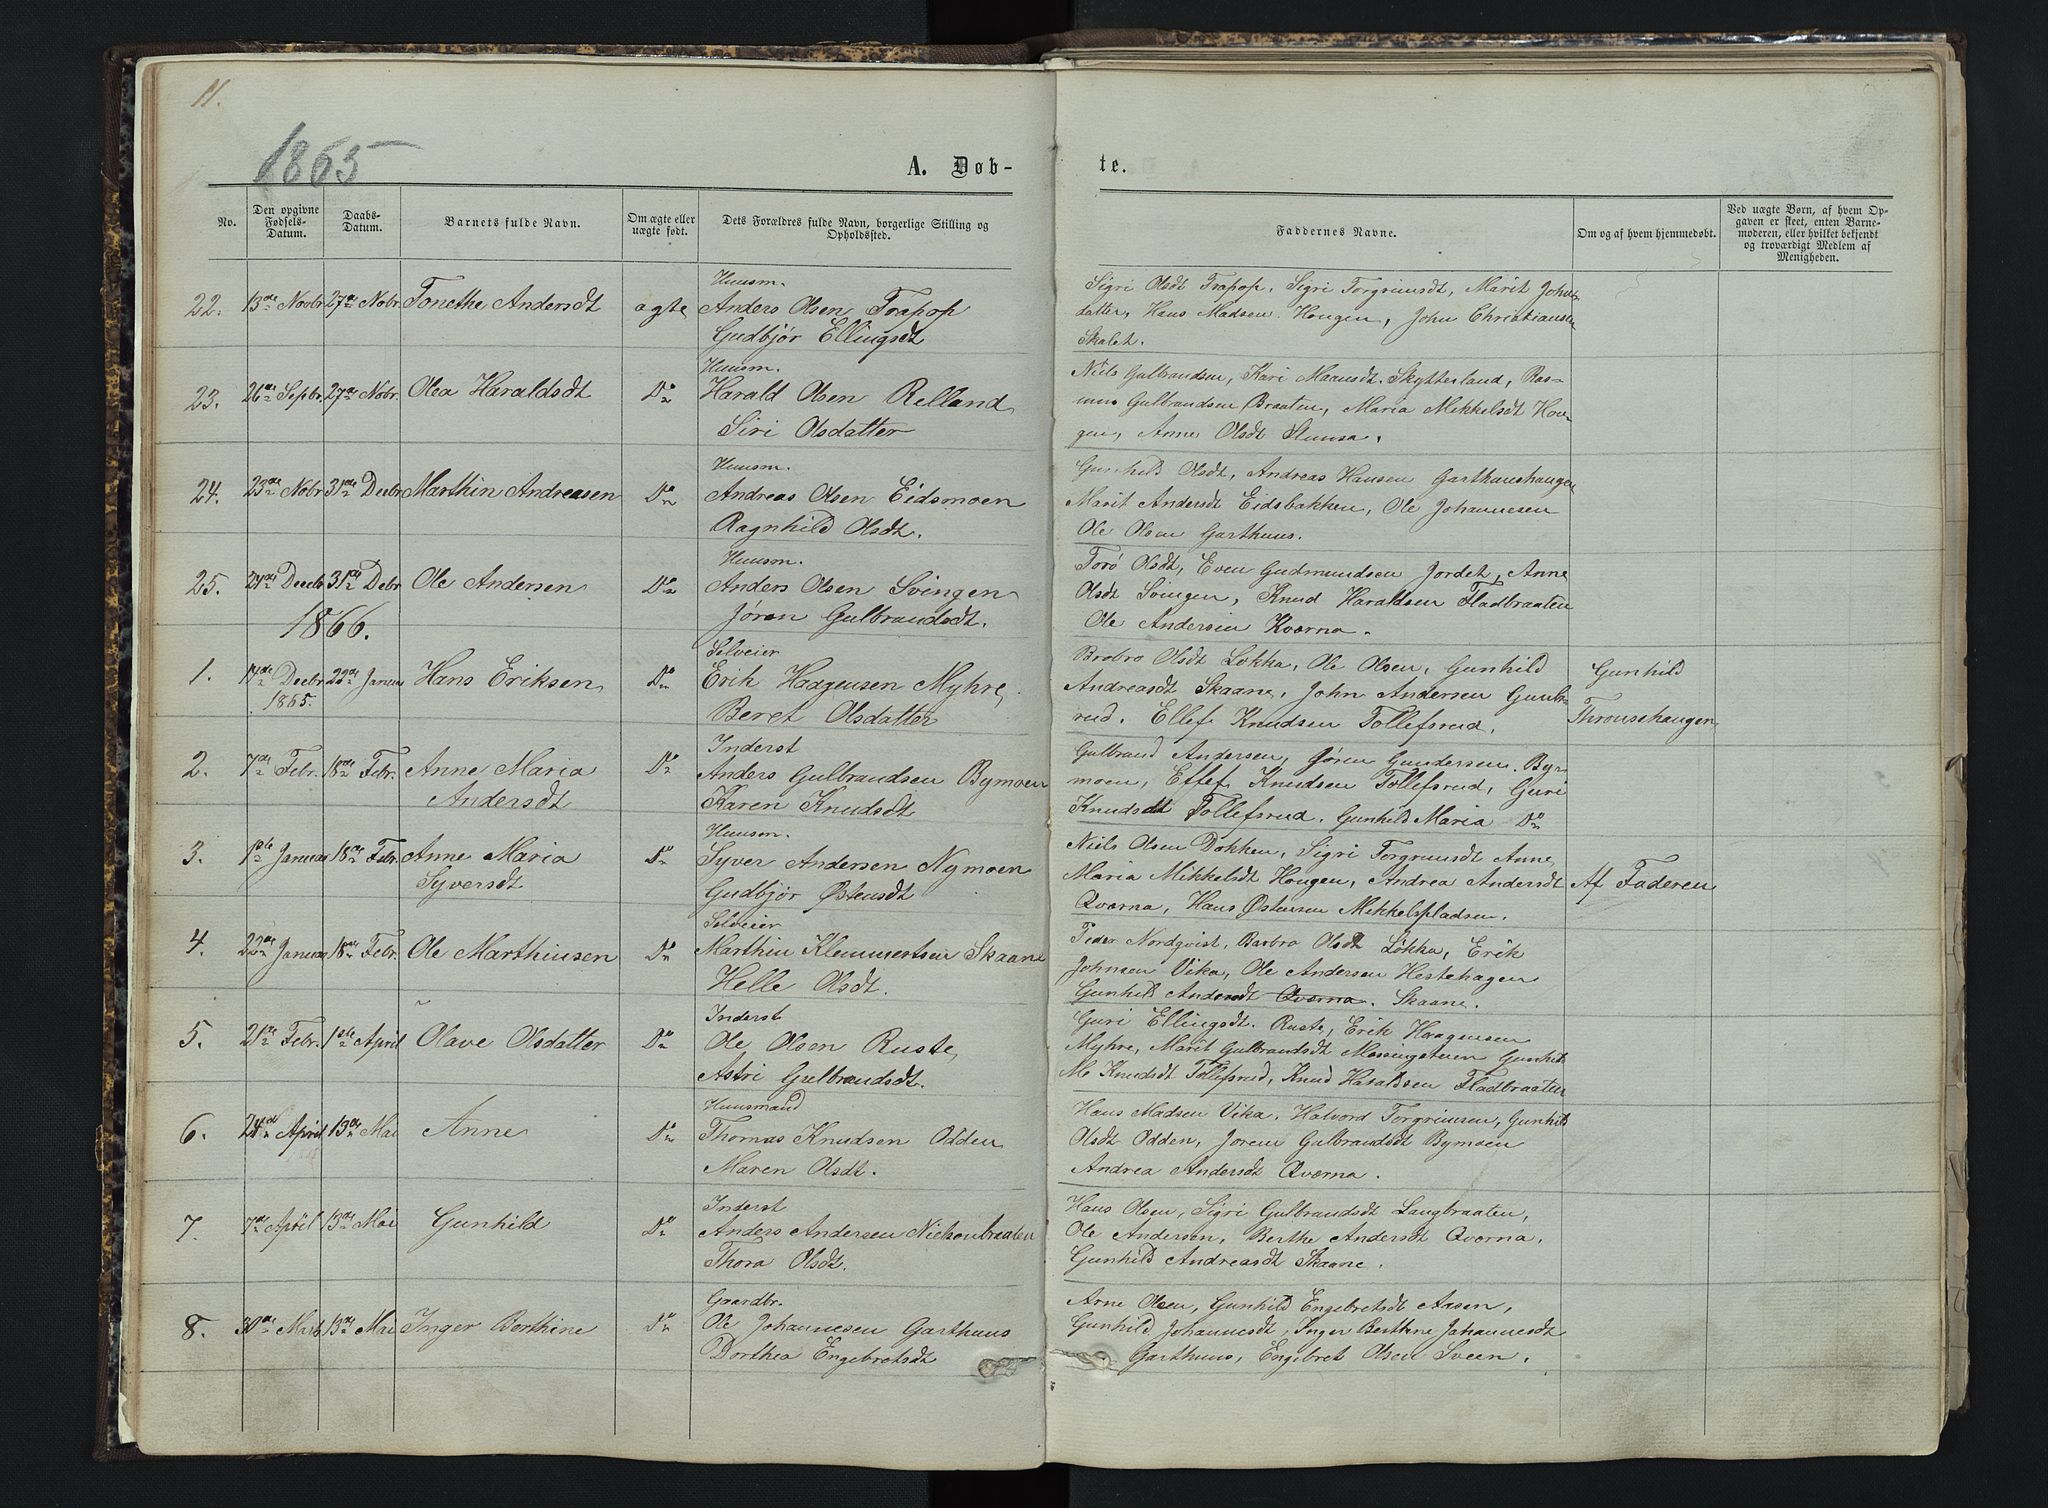 11.
1865
A. Døb-
No.
Den opgivne Fødsels-Datum.
Daabs-Datum.
Barnets fulde Navn.
Om ægte eller uægte født.
Dets Forældres fulde Navn, borgerlige Stilling og Opholdssted.
22. 13de Novbr. 27de Nobr. Tonethe Andersdt ægte Huusm.
Anders Olsen Trapop
Gudbjør Ellingsdt
23. 26de Sepbr. 27de Nobr. Olea Haraldsdt Do Huusm.
Harald Olsen Relland
Siri Olsdatter
24. 23de Nobr 31te Decbr Marthin Andreasen Do Huusm.
Andreas Olsen Eidsmoen
Ragnhild Olsdt.
25. 24de Decbr 31te Debr Ole Andersen Do Huusm.
Anders Olsen Svingen
Jøran Gulbrandsdt.
1866.
1. 14de Decbr 1865. 28de Januar Hans Eriksen Do Selveier
Erik Haagensen Myhre,
Beret Olsdatter
2. 7de Febr. 18de Febr. Anne Maria Andersdt Do Inderst
Anders Gulbrandsen Bymoen
Karen Knudsdt
3. 1ste Januar 18de Febr. Anne Maria Syversdt Do Huusm.
Syver Andersen Nymoen
Gudbjør Østensdt
4. 22de Januar 18de Febr. Ole Marthinsen Do Selveier
Marthin Klemmertsen Skaane
Helle Olsdt.
5. 21de Febr. 1ste April Olave Olsdatter Do Inderst
Ole Olsen Ruste,
Astri Gulbrandsdt.
6. 24de April 13de Mai Anne Do Huusmand
Thomas Knudsen Odden
Maren Olsdt.
7. 7de April 13de Mai Gunhild Do Inderst
Anders Andersen Nielsenbraaten
Thora Olsdt.
8. 30de Marts 13de Mai Inger Berthine Do Gaardbr.
Ole Johannesen Garthuus
Dorthea Engebretsdt
te.
Faddernes Navne.
Om og af hvem hjemmedøbt.
Ved uægte Børn, af hvem Op-
gaven er skeet, enten Barne-
moderen, eller hvilket bekjendt
og troværdigt Medlem af
Menigheden.
Sigri Olsdt Trapop, Sigri Torgrimsdt, Marit Johns-
datter, Hans Madsen Hougen, John Christiansen
Skalet.
Niels Gulbrandsen, Kari Maansdt. Skytterland, Ras-
mus Gulbrandsen Braaten, Maria Mikkelsdt Hou-
gen, Anne Olsdt
Gunhild Olsdt, Andreas Hansen Garthuushaugen
Marit Andersdt Eidsbakken, Ole Johannesen
Ole Olsen Garthuus.
Torø Olsdt, Even Gudmundsen Jordet, Anne
Olsdt Svingen, Knud Haraldsen Fladbraaten
Ole Andersen Kværna.
Brobro Olsdt Løkka, Ole Olsen, Gunhild
Andreasdt Skaane, John Andersen Gunb-
rud, Ellef Knudsen Tollefsrud.
Gunhild
Throusehaugen
Gulbrand Andersen, Jøren Gundersen Bye-
moen, Ellef Knudsen Tollefsrud, Guri
Knudsdt Tollefsrud. Gunhild Maria Do
Niels Olsen Dokken, Sigri Torgrimsdt Anne
Maria Mikkelsdt Hougen, Andrea Andersdt
Qværna, Hans Østensen Mikkelspladsen.
Af Faderen
Peder Nordqvist, Barbro Olsdt Løkka, Erik
Johnsen Vika, Ole Andersen Hestehagen
Gunhild Andersdt Qværna. Skaane.
Guri Ellingsdt. Ruste, Erik Haagensen
Myhre, Marit Gulbrandsdt Messingstuen Gunhild
Me Knudsdt Tollefsrud, Knud Haraldsen Fladbraaten
Hans Madsen Vika. Halvord Torgrimsen, Gunhild
Olsdt Odden, Joren Gulbrandsdt Bymoen
Andrea Andersdt Qværna.
Hans Olsen, Sigri Gulbrandsdt Langbraaten,
Ole Andersen, Berthe Andersdt Qværna,
Gunhild Andreasdt Skaane.
Arne Olsen, Gunhild Engebretsdt Aasen,
Gunhild Johannesdt, Inger Berthine Johannesdt
Garthuus, Engebret Olsen Sveen.